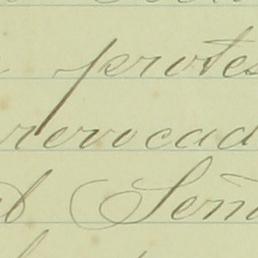 protes
revocad
Señ